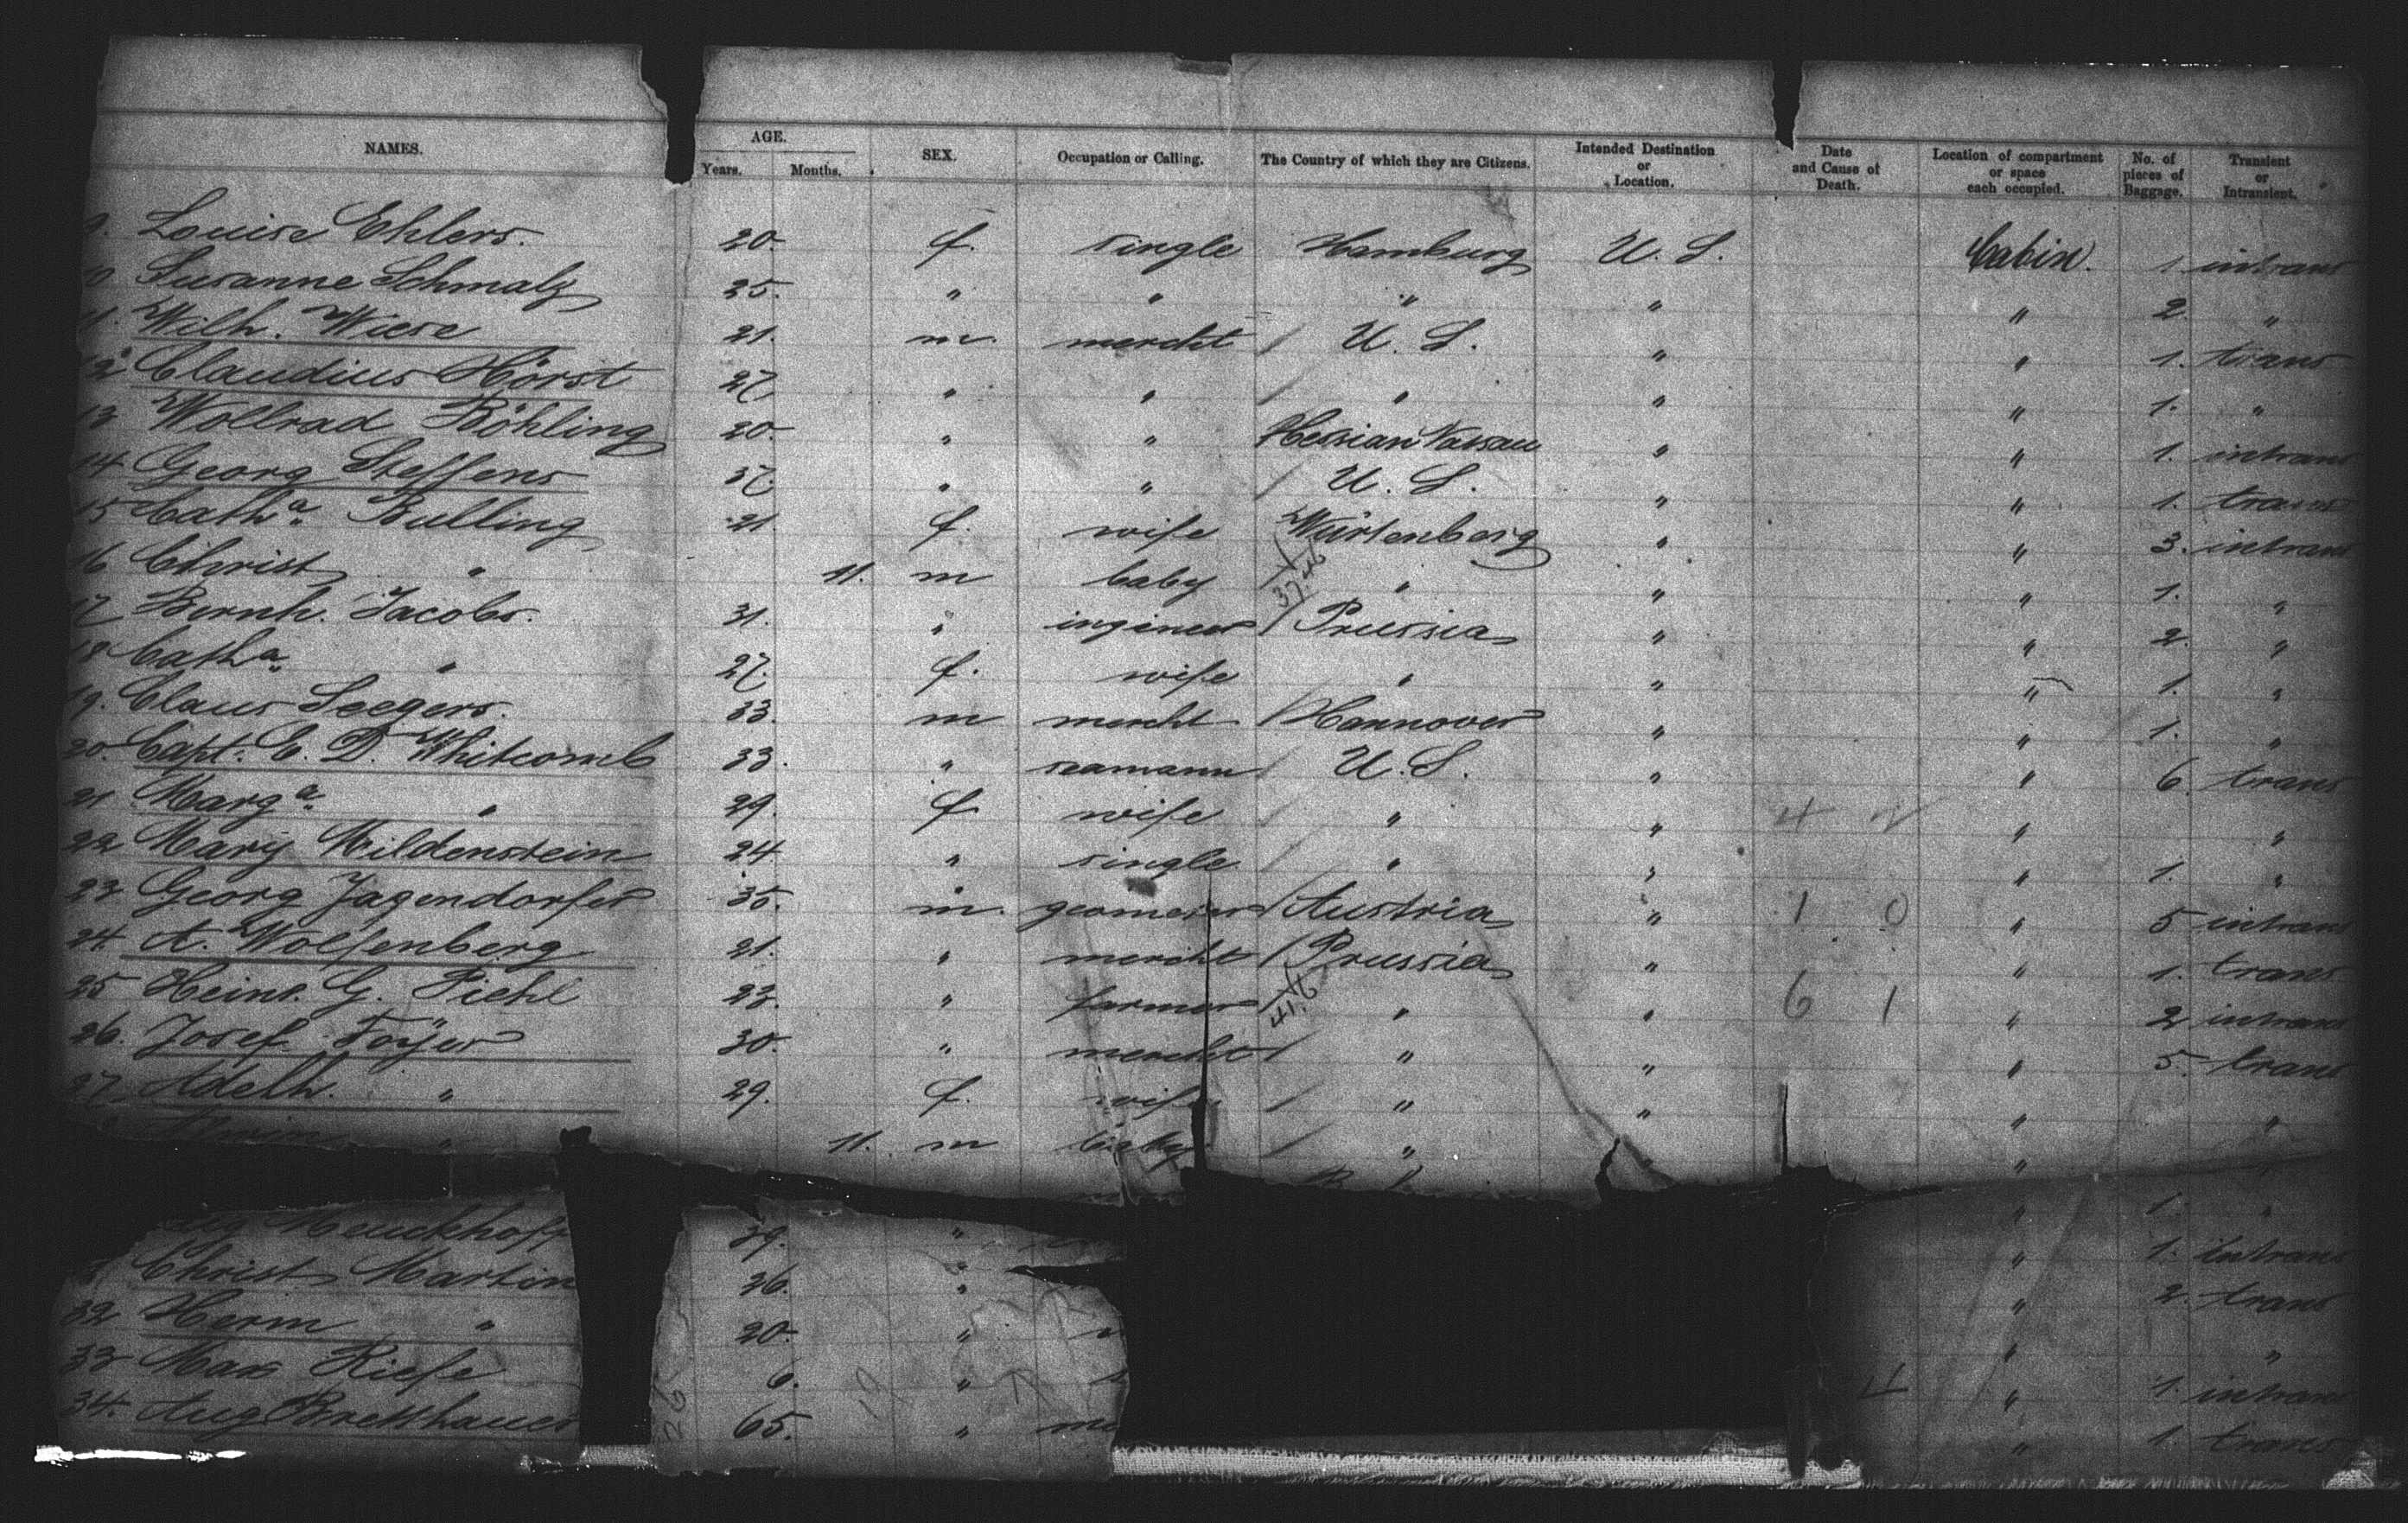 NAMES. AGE. Years. Months. SEX. Occupation or Calling. The Country of which they are Citizens. Intended Destination or Location. Date and Cause of Death. Location of compartment or space each occupied. No. of pieces of Baggage. Transient or Intransient.
9. Louise Ehlers. 20. f. single Hamburg U. S. Cabin. 1. intrans
10 Susanne Schmalz 25. " " " " " 2. "
11. Wilh. Wiese 21. m. mercht / U. S. " " 1. trans
12 Claudius Horst 27 " " " " " 1. "
13 Wollrad Böhling 20. " " Hessian Nassau " " 1. intrans
14 Georg Steffens 37. " " / U. S. " " 1. trans
15 Catha. Bulling 21. f. wife Würtenberg " " 3. intrans
16 Christ " 11. m baby " " " 1. "
17 Bernh. Jacobs. 31. " ingineer / Prussia " " 2. "
18 Catha. " 27. f. wife " " " 1. "
19. Claus Seegers. 33. m mercht / Hannover " " 1. "
20. Capt. C. D. Whitcomb 33. " seamann / U. S. " " 6. trans
21 Marga. " 29. f wife / " " 4 " "
22 Mary Mildenstein 24. " single " " " 1. "
23 Georg Jagendorfer 35. m. geometer / Austria " 1 0 " 5 intrans
24. A. Wolfenberg 21. " mercht / Prussia " " 1. trans
25 Heinr. G. Piehl 23. " farmer / " " 6 1 " 2 intrans
26. Josef 30. " mercht / " " " 5. trans
27. Adelh. " 29. f. wife / " " " "
" 11. m baby / " " "
" 1. "
Heuckhoff 39. " " 1. intrans
Christ Martin 26. " " 2. trans
32 Herm " 20. " " "
33 Max Riefe 6. " 4 " 1. intrans
34. Aug Bretthauer 65. " " 1. trans